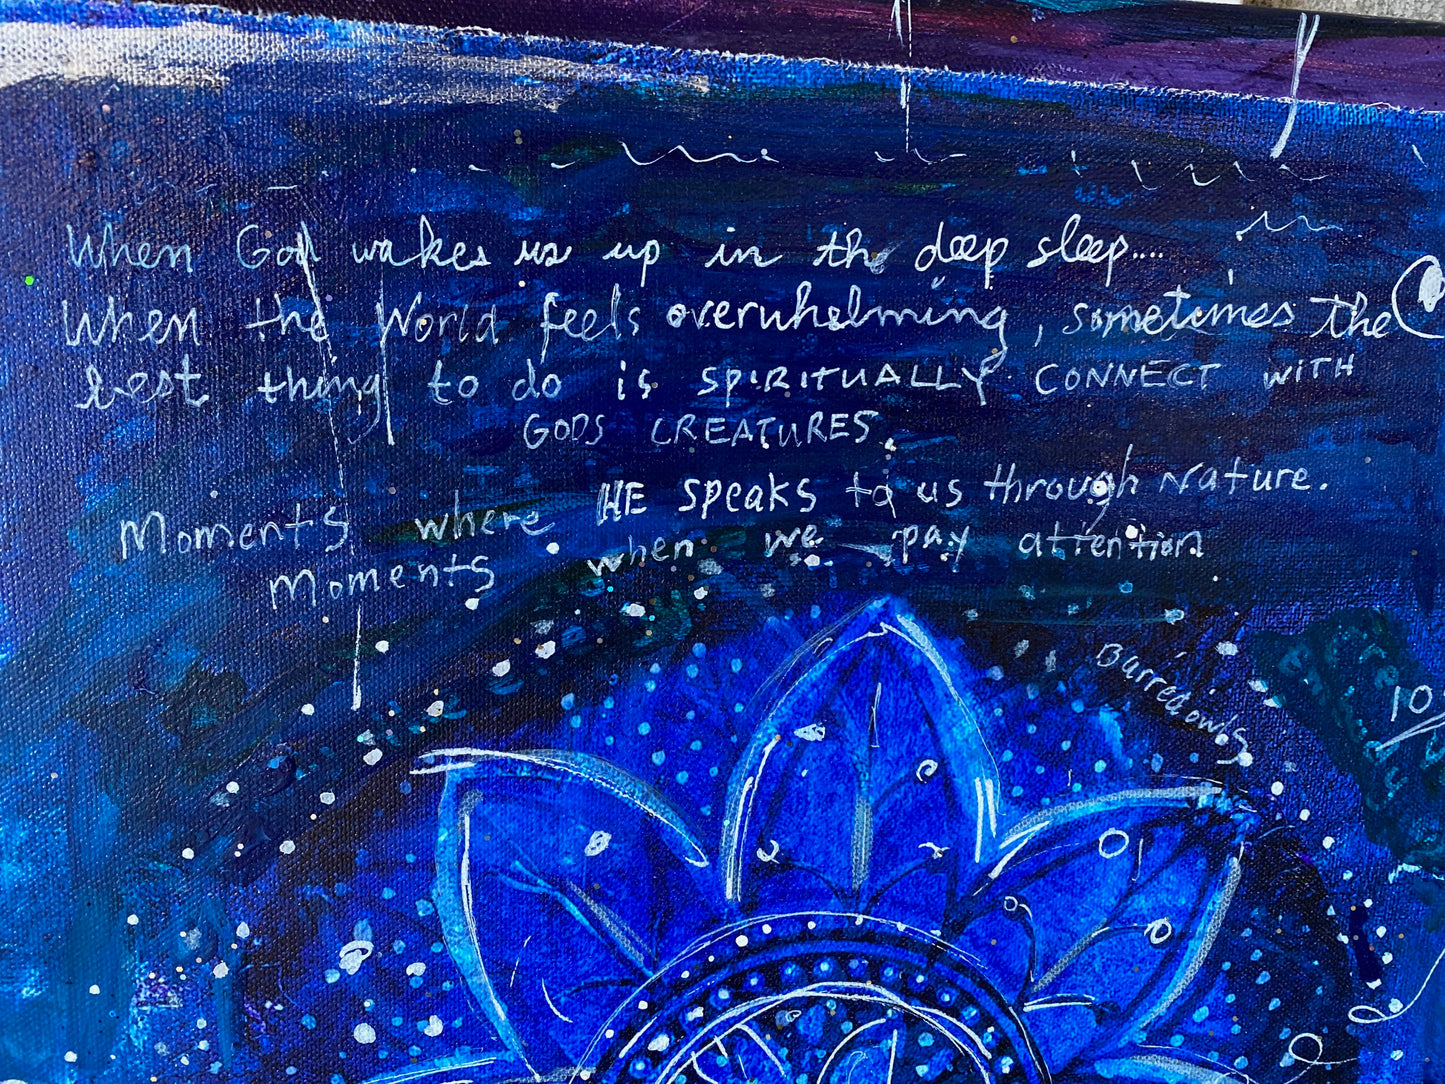 When God wakes us up in the deep sleep....
When the World feels overwhelming, sometimes the
best thing to do is SPIRITUALLY CONNECT WITH
GODS CREATURES.
Moments where HE speaks to us through Nature.
Moments when we pay attention
Barred owls
10/